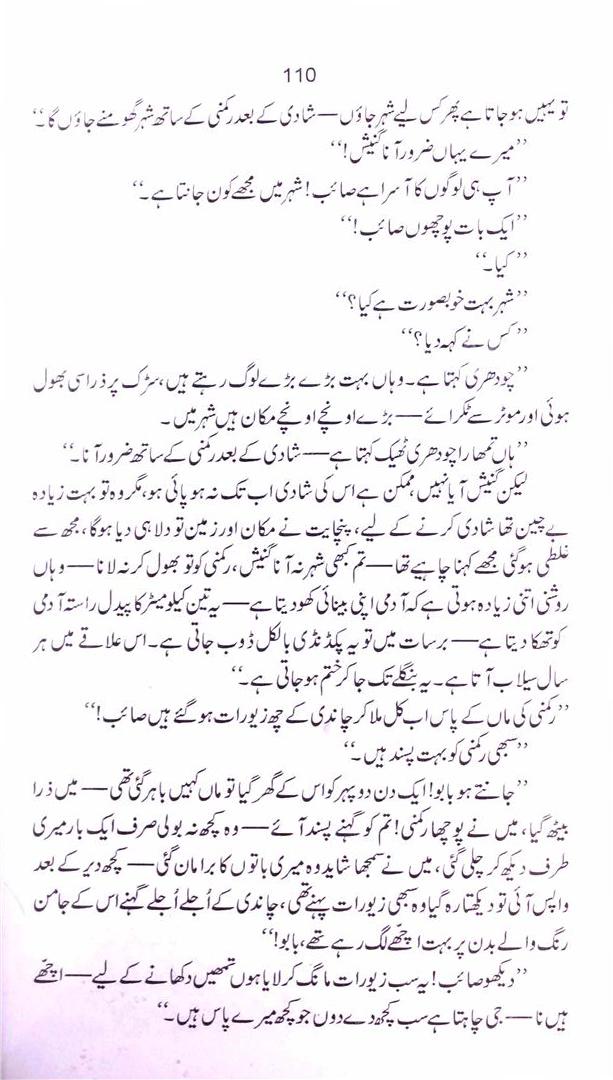 110
تو یہیں ہو جاتا ہے پھر کس لیے شہر جاؤں — شادی کے بعد رکمنی کے ساتھ شہر گھومنے جاؤں گا۔‘‘
’’میرے یہاں ضرور آنا گنیش!‘‘
’’آپ ہی لوگوں کا آسرا ہے صائب! شہر میں مجھے کون جانتا ہے۔‘‘
’’ایک بات پوچھوں صائب!‘‘
’’کیا۔‘‘
’’شہر بہت خوبصورت ہے کیا؟‘‘
’’کس نے کہہ دیا؟‘‘
’’چودھری کہتا ہے۔ وہاں بہت بڑے بڑے لوگ رہتے ہیں، سڑک پر ذرا سی بھول
ہوئی اور موٹر سے ٹکرائے — بڑے اونچے اونچے مکان ہیں شہر میں۔
’’ہاں تمھارا چودھری ٹھیک کہتا ہے — شادی کے بعد رکمنی کے ساتھ ضرور آنا۔‘‘
لیکن گنیش آیا نہیں، ممکن ہے اس کی شادی اب تک نہ ہو پائی ہو، مگر وہ تو بہت زیادہ
بے چین تھا شادی کرنے کے لیے، پنچایت نے مکان اور زمین تو دلا ہی دیا ہوگا، مجھ سے
غلطی ہو گئی مجھے کہنا چاہیے تھا — تم کبھی شہر نہ آنا گنیش، رکمنی کو تو بھول کر نہ لانا — وہاں
روشنی اتنی زیادہ ہوتی ہے کہ آدمی اپنی بینائی کھو دیتا ہے — یہ تین کیلومیٹر کا پیدل راستہ آدمی
کو تھکا دیتا ہے — برسات میں تو یہ پگڈنڈی بالکل ڈوب جاتی ہے۔ اس علاقے میں ہر
سال سیلاب آتا ہے۔ یہ بنگلے تک جا کر ختم ہو جاتی ہے۔‘‘
’’رکمنی کی ماں کے پاس اب کل ملا کر چاندی کے چھ زیورات ہو گئے ہیں صائب!‘‘
’’سبھی رکمنی کو بہت پسند ہیں۔‘‘
’’جانتے ہو بابو! ایک دن دوپہر کو اس کے گھر گیا تو ماں کہیں باہر گئی تھی — میں ذرا
بیٹھ گیا، میں نے پوچھا رکمنی! تم کو گہنے پسند آئے — وہ کچھ نہ بولی صرف ایک بار میری
طرف دیکھ کر چلی گئی، میں نے سمجھا شاید وہ میری باتوں کا برا مان گئی — کچھ دیر کے بعد
واپس آئی تو دیکھتا رہ گیا وہ سبھی زیورات پہنے تھی، چاندی کے اُجلے اُجلے گہنے اس کے جامن
رنگ والے بدن پر بہت اچھے لگ رہے تھے، بابو!‘‘
’’دیکھو صائب! یہ سب زیورات مانگ کر لایا ہوں تمھیں دکھانے کے لیے — اچھے
ہیں نا — جی چاہتا ہے سب کچھ دے دوں جو کچھ میرے پاس ہیں۔‘‘